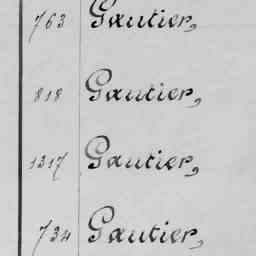 763 Gautier,
818 Gautier,
1317 Gautier,
734 Gautier,